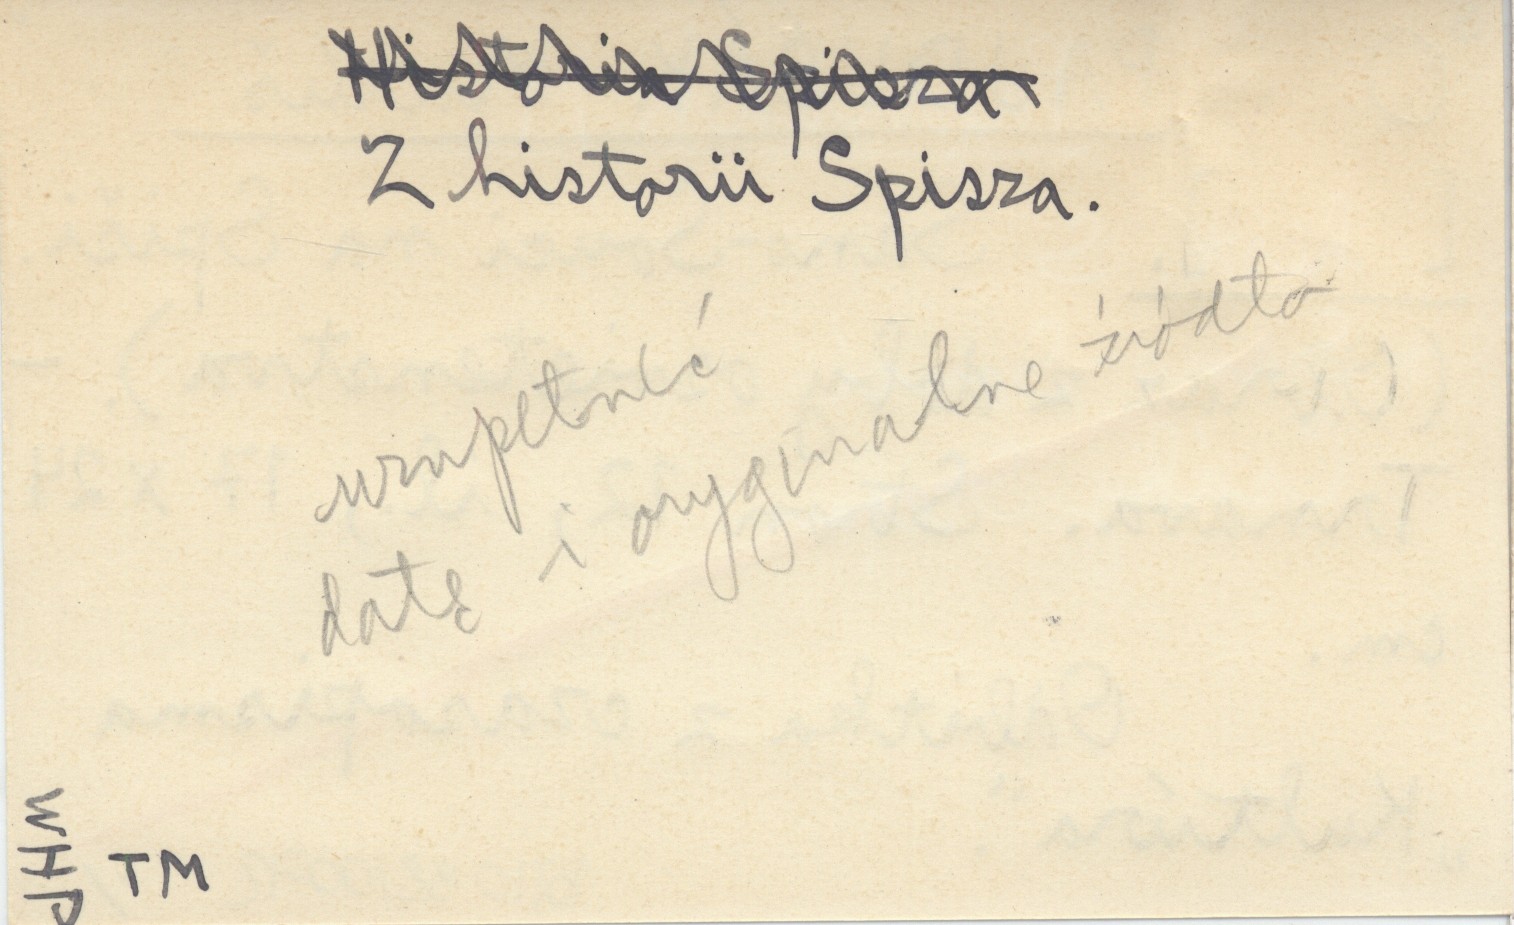 Historia Spisza
Z historii Spisza.
uzupełnić
datę i oryginalne źródło
WHP
TM